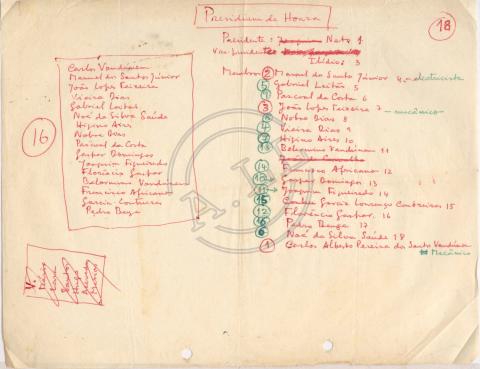 Presidium de Honra
18
Presidente: Neto 1
Vice-presidente:
Ilídio 3
Membros: 2 Manuel do Santo Júnior 4 - electricista
Gabriel Leitão 5
Pascoal da Costa 6
3 João Lopes Teixeira 7 - mecânico
Nobre Dias 8
Vieira Dias 9
Higino Aires 10
Belarmino Vanduném 11
14 Francisco Africano 12
Gaspar Domingos 13
11 Joaquim Figueiredo 14
15 Garcia Lourenço Contreiras 15
12 Florêncio Gaspar 16
16 Pedro Benga 17
6 Noé da Silva Saúde 18
1 Carlos Alberto Pereira dos Santos Vanduném
Mecânico
16
Carlos Vanduném
Manuel dos Santos Júnior
João Lopes Teixeira
Vieira Dias
Gabriel Leitão
Noé da Silva Saúde
Higino Aires
Nobre Dias
Pascoal da Costa
Gaspar Domingos
Joaquim Figueiredo
Florêncio Gaspar
Belarmino Vanduném
Francisco Africano
Garcia Contreiras
Pedro Benga
V.